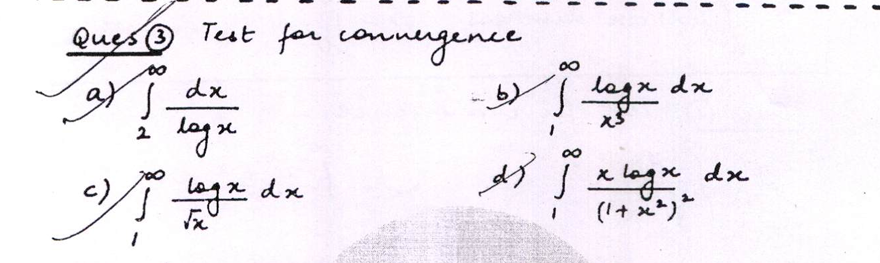 Ques ③ Test for convergence
a) ∫₂^∞ dx / log x b) ∫₁^∞ log x / x³ dx
c) ∫₁^∞ log x / √x dx d) ∫₁^∞ x log x / (1 + x²)² dx